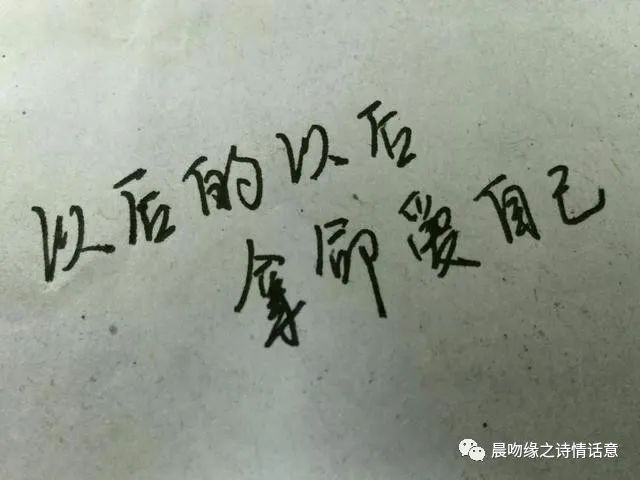 以后的以后
余部爱自己
晨吻缘之诗情话意